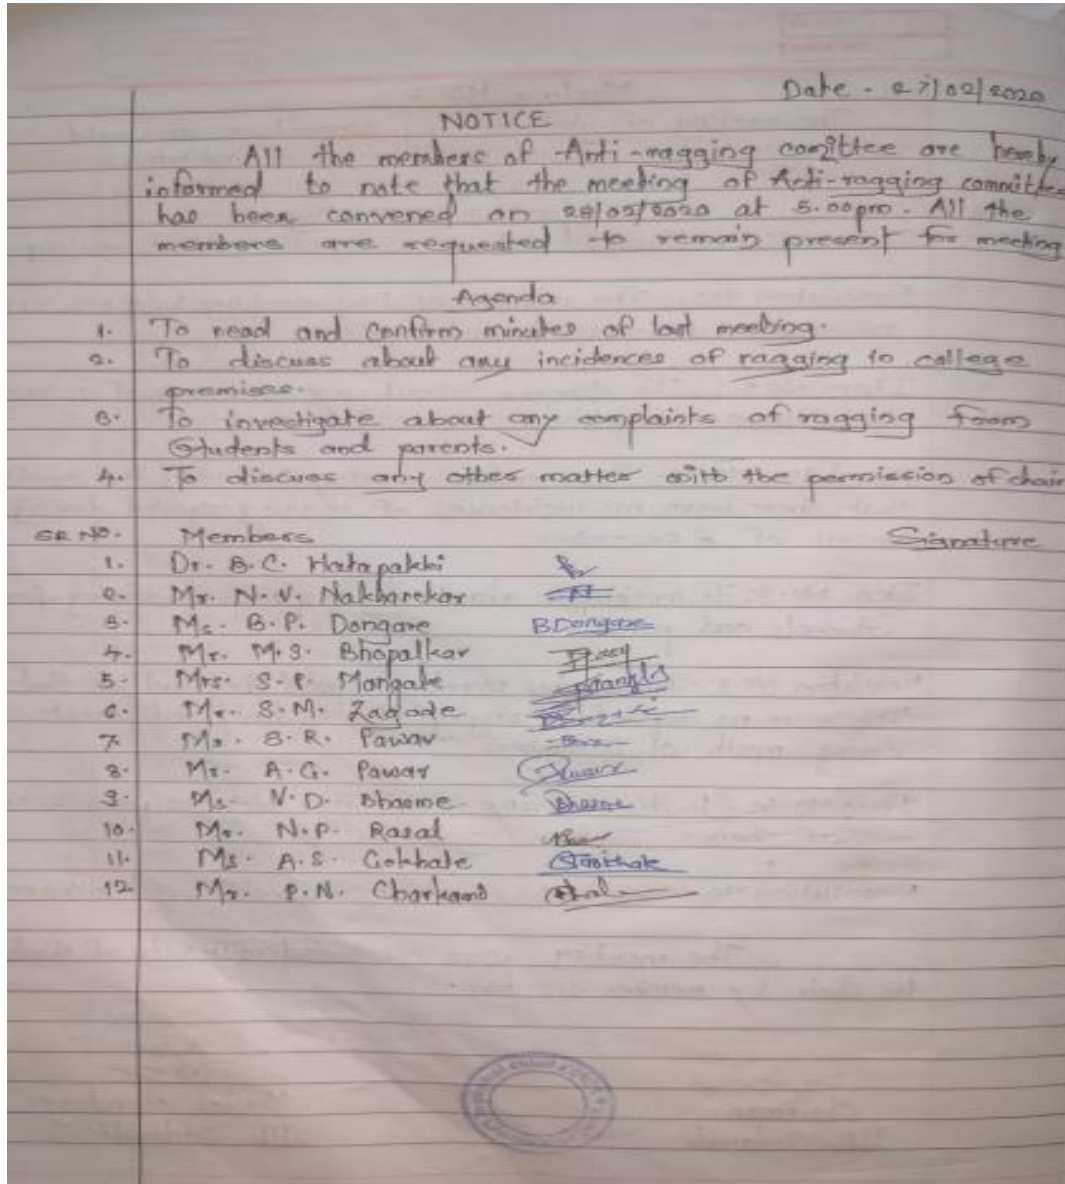 Date - 27/02/2020
NOTICE
All the members of Anti-ragging comittee are hereby
informed to note that the meeting of Anti-ragging committee
has been convened on 28/02/2020 at 5.00pm. All the
members are requested to remain present for meeting
Agenda
1. To read and confirm minutes of last meeting.
2. To discuss about any incidences of ragging in college
premises.
3. To investigate about any complaints of ragging from
Students and parents.
4. To discuss any other matter with the permission of chair
SR NO. Members Signature
1. Dr. B. C. Hatapakki
2. Mr. N. V. Nakhanekar
3. Ms. B. P. Dongare B.Dongare
4. Mr. M. S. Bhopalkar
5. Mrs. S. P. Mangale
6. Mr. S. M. Zagade
7. Ms. S. R. Pawar
8. Mr. A. G. Pawar Pawar
9. Ms. V. D. Bhasme Bhasme
10. Mr. N. P. Rasal
11. Ms. A. S. Gokhale Gokhale
12. Mr. P. N. Charkane